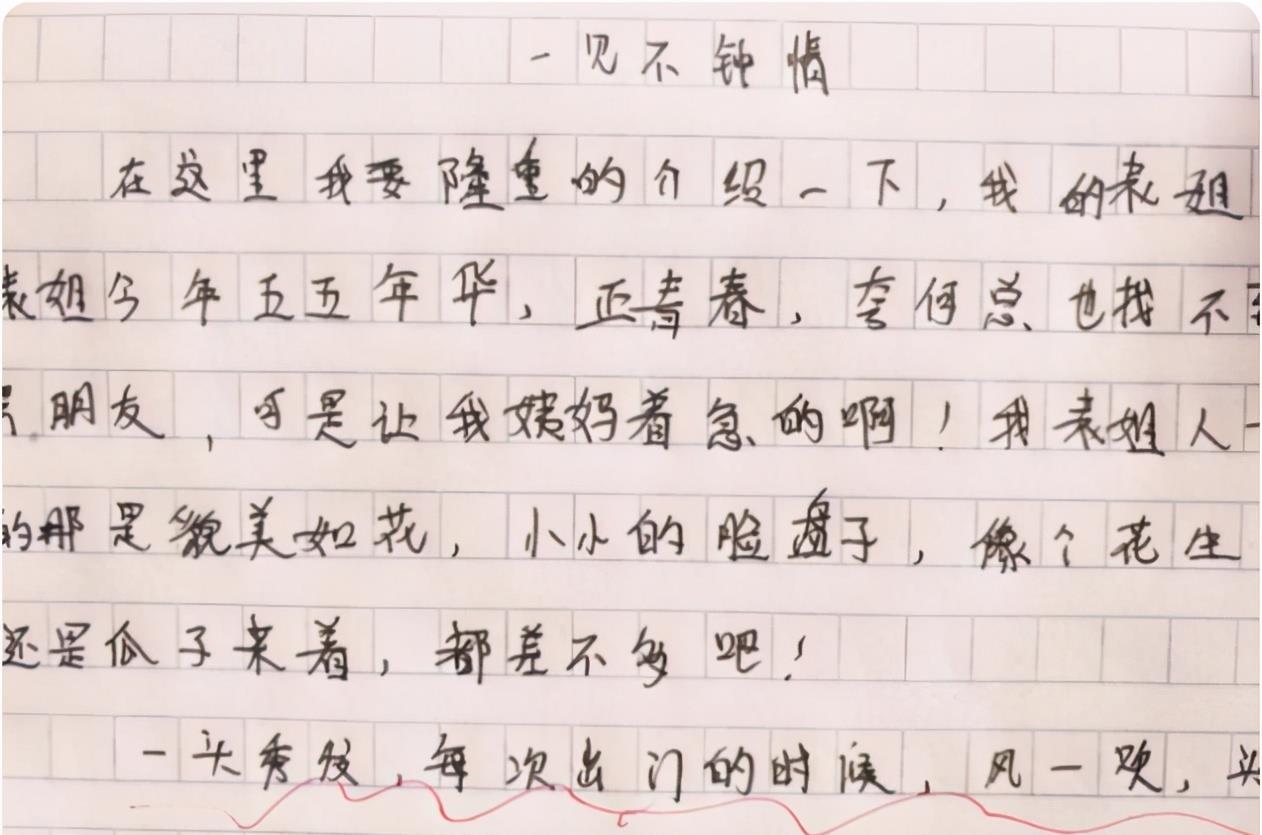 一见不钟情
在这里我要隆重的介绍一下，我的表姐
表姐今年五五年华，正青春，奈何总也找不
朋友，可是让我姨妈着急的啊！我表姐人
的那是貌美如花，小小的脸盘子，像个花生
还是瓜子来着，都差不多吧！
一头秀发，每次出门的时候，风一吹，头